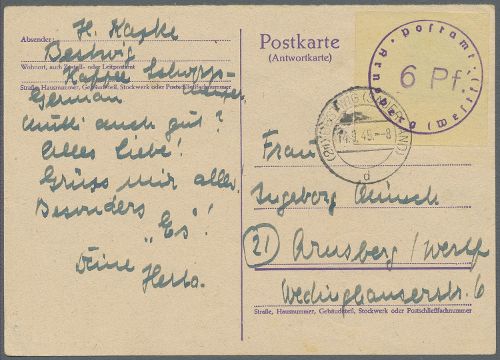 Absender: H. Kaske
Bestwig
Wohnort, auch Zustell- oder Leitpostamt
Kaffee
Straße, Hausnummer, Gebäudeteil, Stockwerk oder Postschließfachnummer
German
Mutti auch gut?
Alles Liebe!
Grüss mir alle,
Besonders
"Es"!
Deine
Herta.
Postkarte
(Antwortkarte)
Postamt (
Arnsberg (Westf)
6 Pf.
8
d
Frau
Ingeborg Münch
(21) Arnsberg / Westf
Wedinghauserstr. 6
Straße, Hausnummer, Gebäudeteil, Stockwerk oder Postschließfachnummer